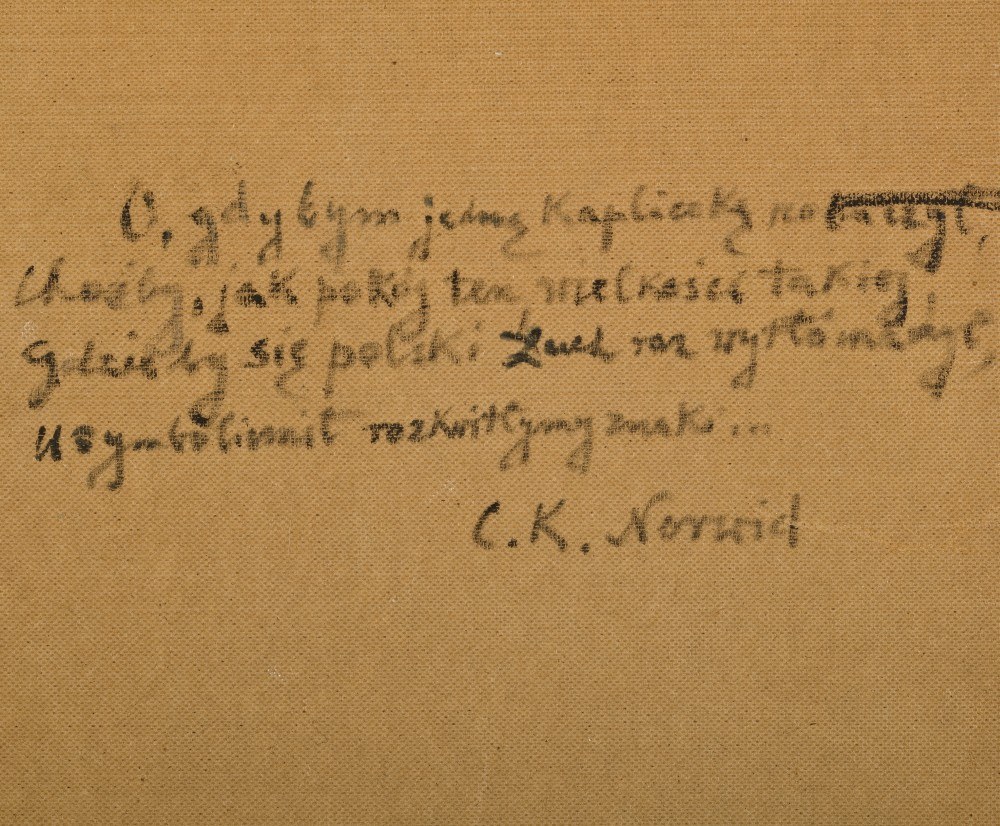 O, gdybym jedną kapliczkę zobaczył,
Choćby, jak pokój ten, wielkości takiej,
Gdzie by się polski duch raz wytłómaczył,
Usymbolicznił rozkwitłymi znaki...
C. K. Norwid